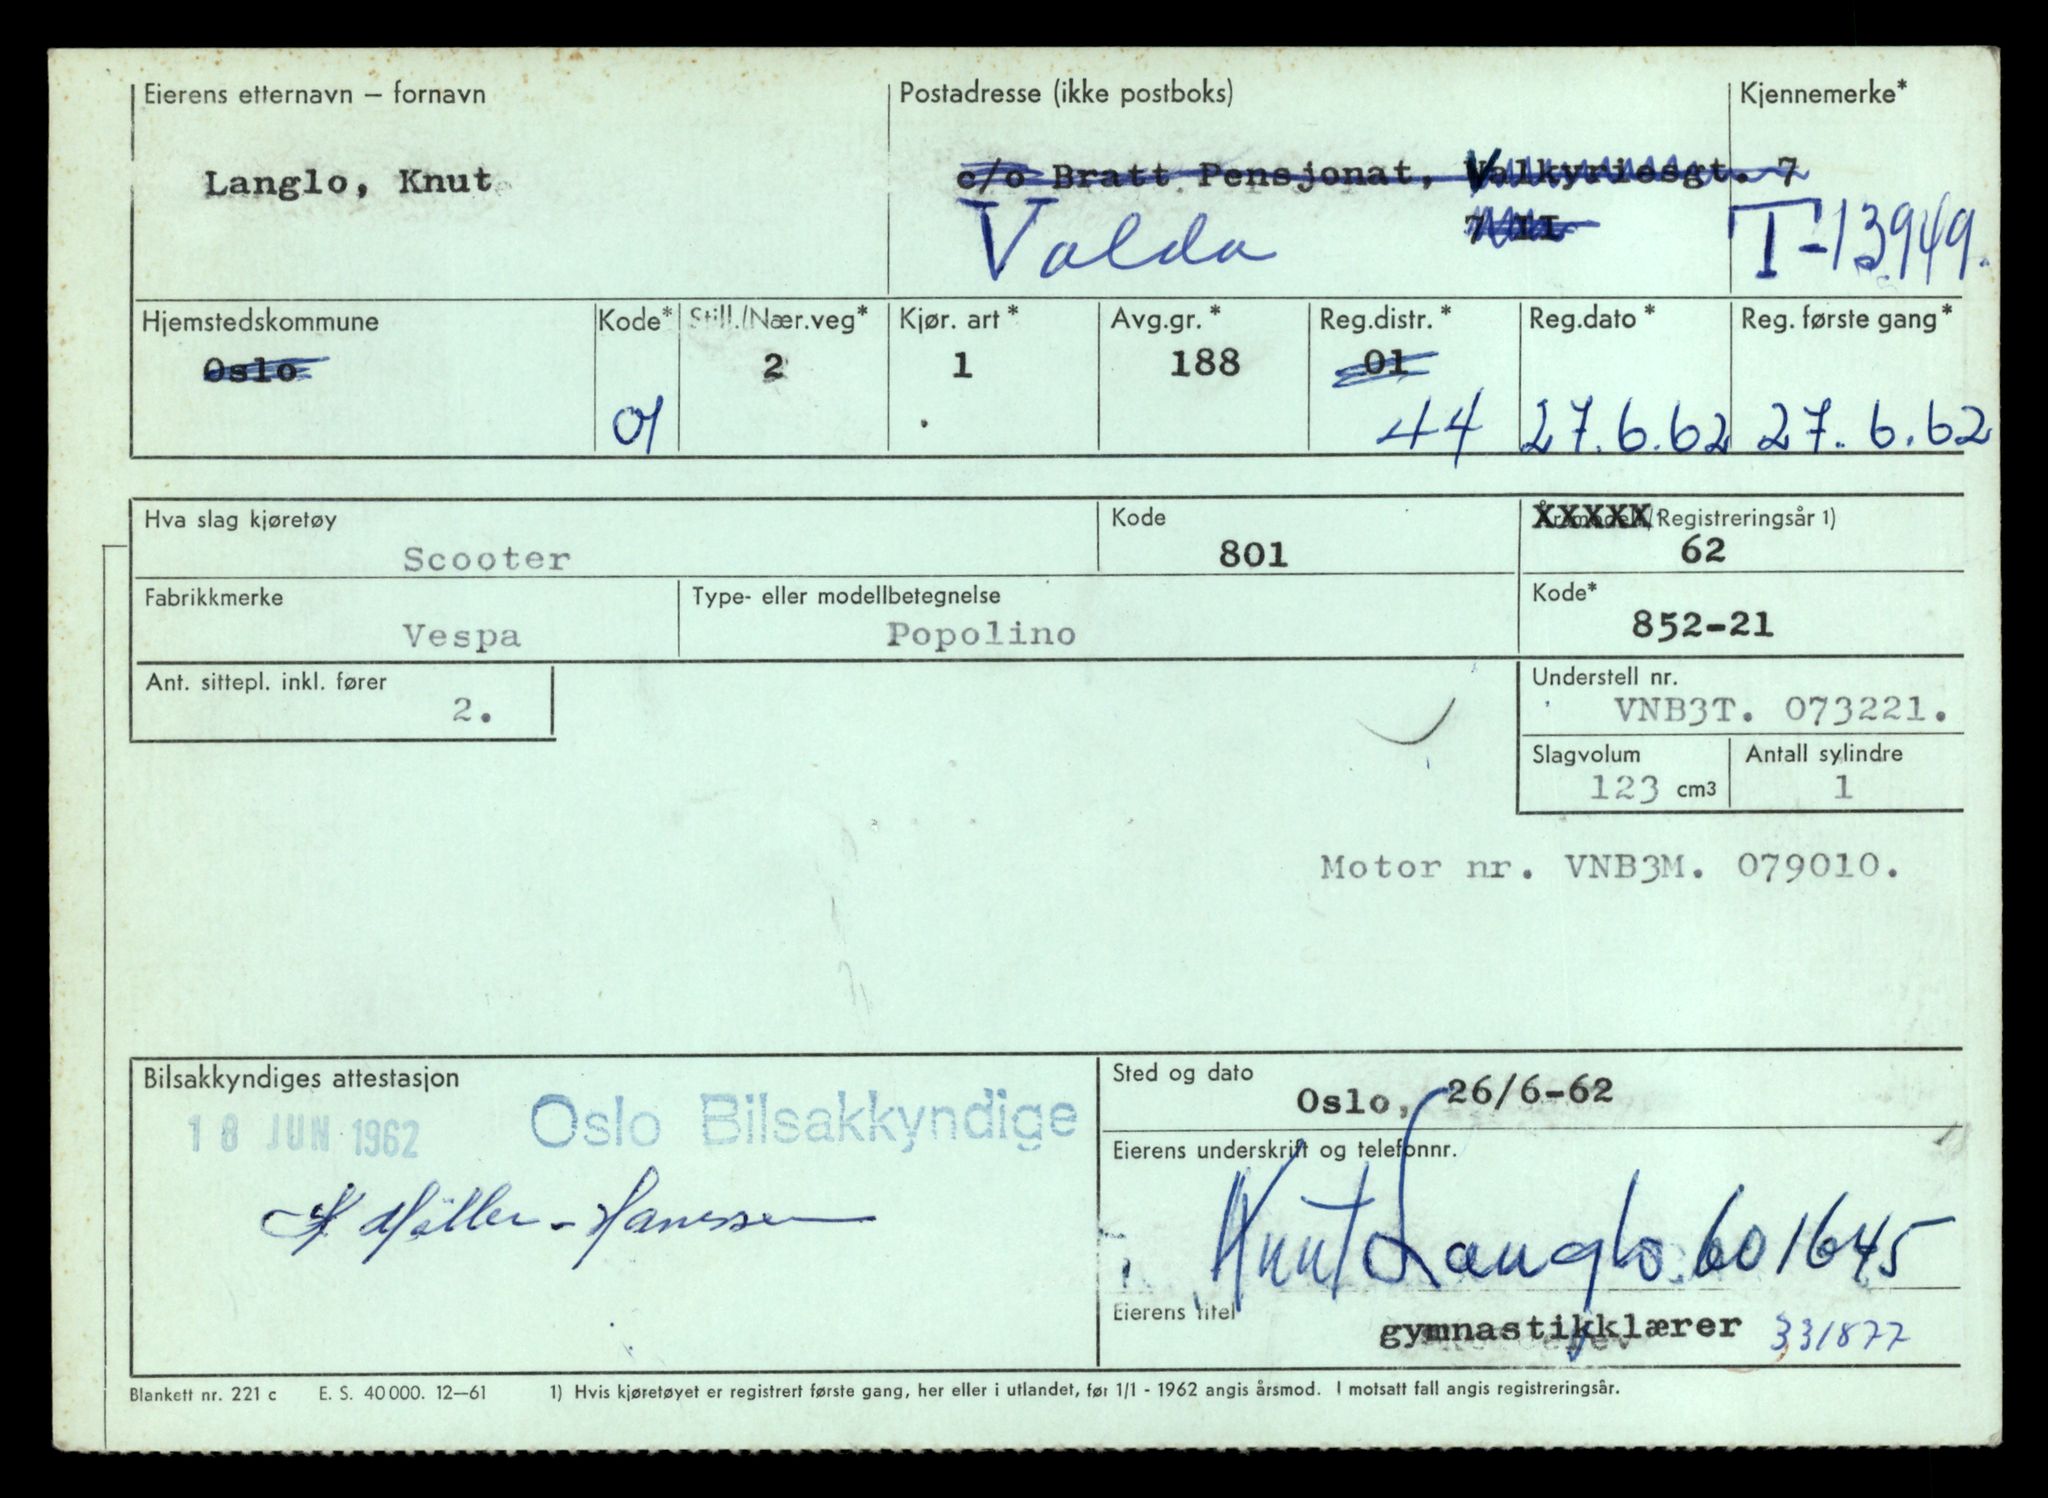 Eierens etternavn – fornavn
Postadresse (ikke postboks)
Kjennemerke*
Langlo, Knut
c/o Bratt Pensjonat, Valkyriesgt. 7
7 II
Volda
T-13949.
Hjemstedskommune
Kode*
Still./Nær.veg*
Kjør. art*
Avg.gr.*
Reg.distr.*
Reg.dato*
Reg. første gang*
Oslo
2
1
188
01
01
44
27.6.62
27.6.62
Hva slag kjøretøy
Kode
Årsmodell/Registreringsår 1)
Scooter
801
62
Fabrikkmerke
Type- eller modellbetegnelse
Kode*
Vespa
Popolino
852-21
Ant. sittepl. inkl. fører
2.
Understell nr.
VNB3T. 073221.
Slagvolum
Antall sylindre
123 cm3
1
Motor nr. VNB3M. 079010.
Bilsakkyndiges attestasjon
18 JUN 1962
Oslo Bilsakkyndige
Møller-Hanssen
Sted og dato
Oslo, 26/6-62
Eierens underskrift og telefonnr.
Knut Langlo. 601645
Eierens titel
gymnastikklærer 331877
Blankett nr. 221 c E. S. 40 000. 12–61 1) Hvis kjøretøyet er registrert første gang, her eller i utlandet, før 1/1 - 1962 angis årsmod. I motsatt fall angis registreringsår.